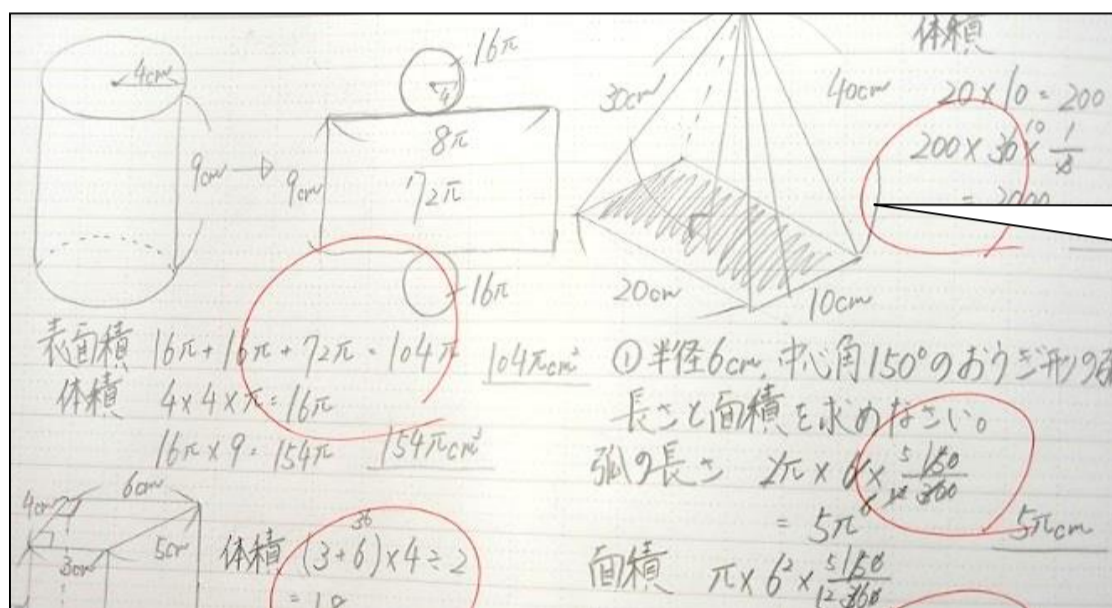 4cm
9cm
16π
4
8π
9cm
72π
16π
表面積 16π+16π+72π=104π 104πcm²
体積 4×4×π=16π
16π×9=154π 154πcm³
6cm
4cm
3cm
5cm
体積 (3+6)×4÷2
36
=18
30cm
40cm
20cm
10cm
体積
20×10=200
200×30×1/3
10
=2000
①半径6cm,中心角150°のおうぎ形の弧
長さと面積を求めなさい。
弧の長さ 2π×6×150/360
=5π 5πcm
面積 π×6²×150/360